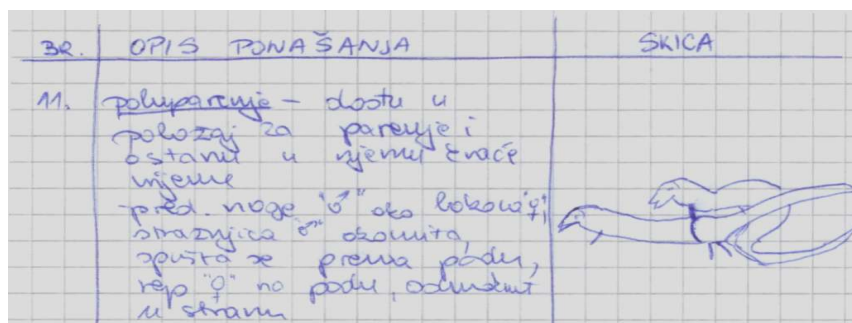 BR. OPIS PONAŠANJA SKICA
11. poluparenje – dođu u
položaj za parenje i
ostanu u njemu kraće
vrijeme
- pred. noge "♂" oko bokova "♀",
stražnjica "♂" okomita,
spušta se prema podu,
rep "♀" na podu, odmaknut
u stranu